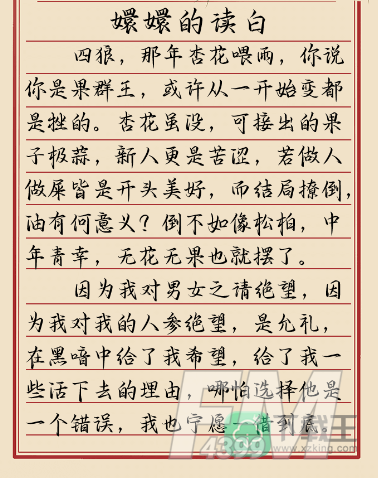 嬛嬛的读白
四狼，那年杏花喂雨，你说
你是果群王，或许从一开始变都
是挫的。杏花虽没，可接出的果
子极蒜，新人更是苦涩，若做人
做屎皆是开头美好，而结局撩倒，
油有何意义？倒不如像松柏，中
年青幸，无花无果也就摆了。
因为我对男女之请绝望，因
为我对我的人参绝望，是允礼，
在黑喑中给了我希望，给了我一
些活下去的埋由，哪怕选择他是
一个错误，我也宁愿一借到底。
4399
下载王
www.xzking.com